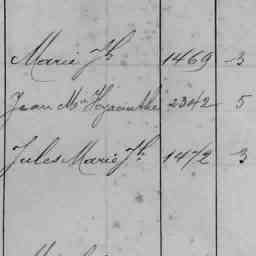 Marie Jh 1469 3
Jean Mie Hyacinthe 2342 5
Jules Marie Jh 1472 3